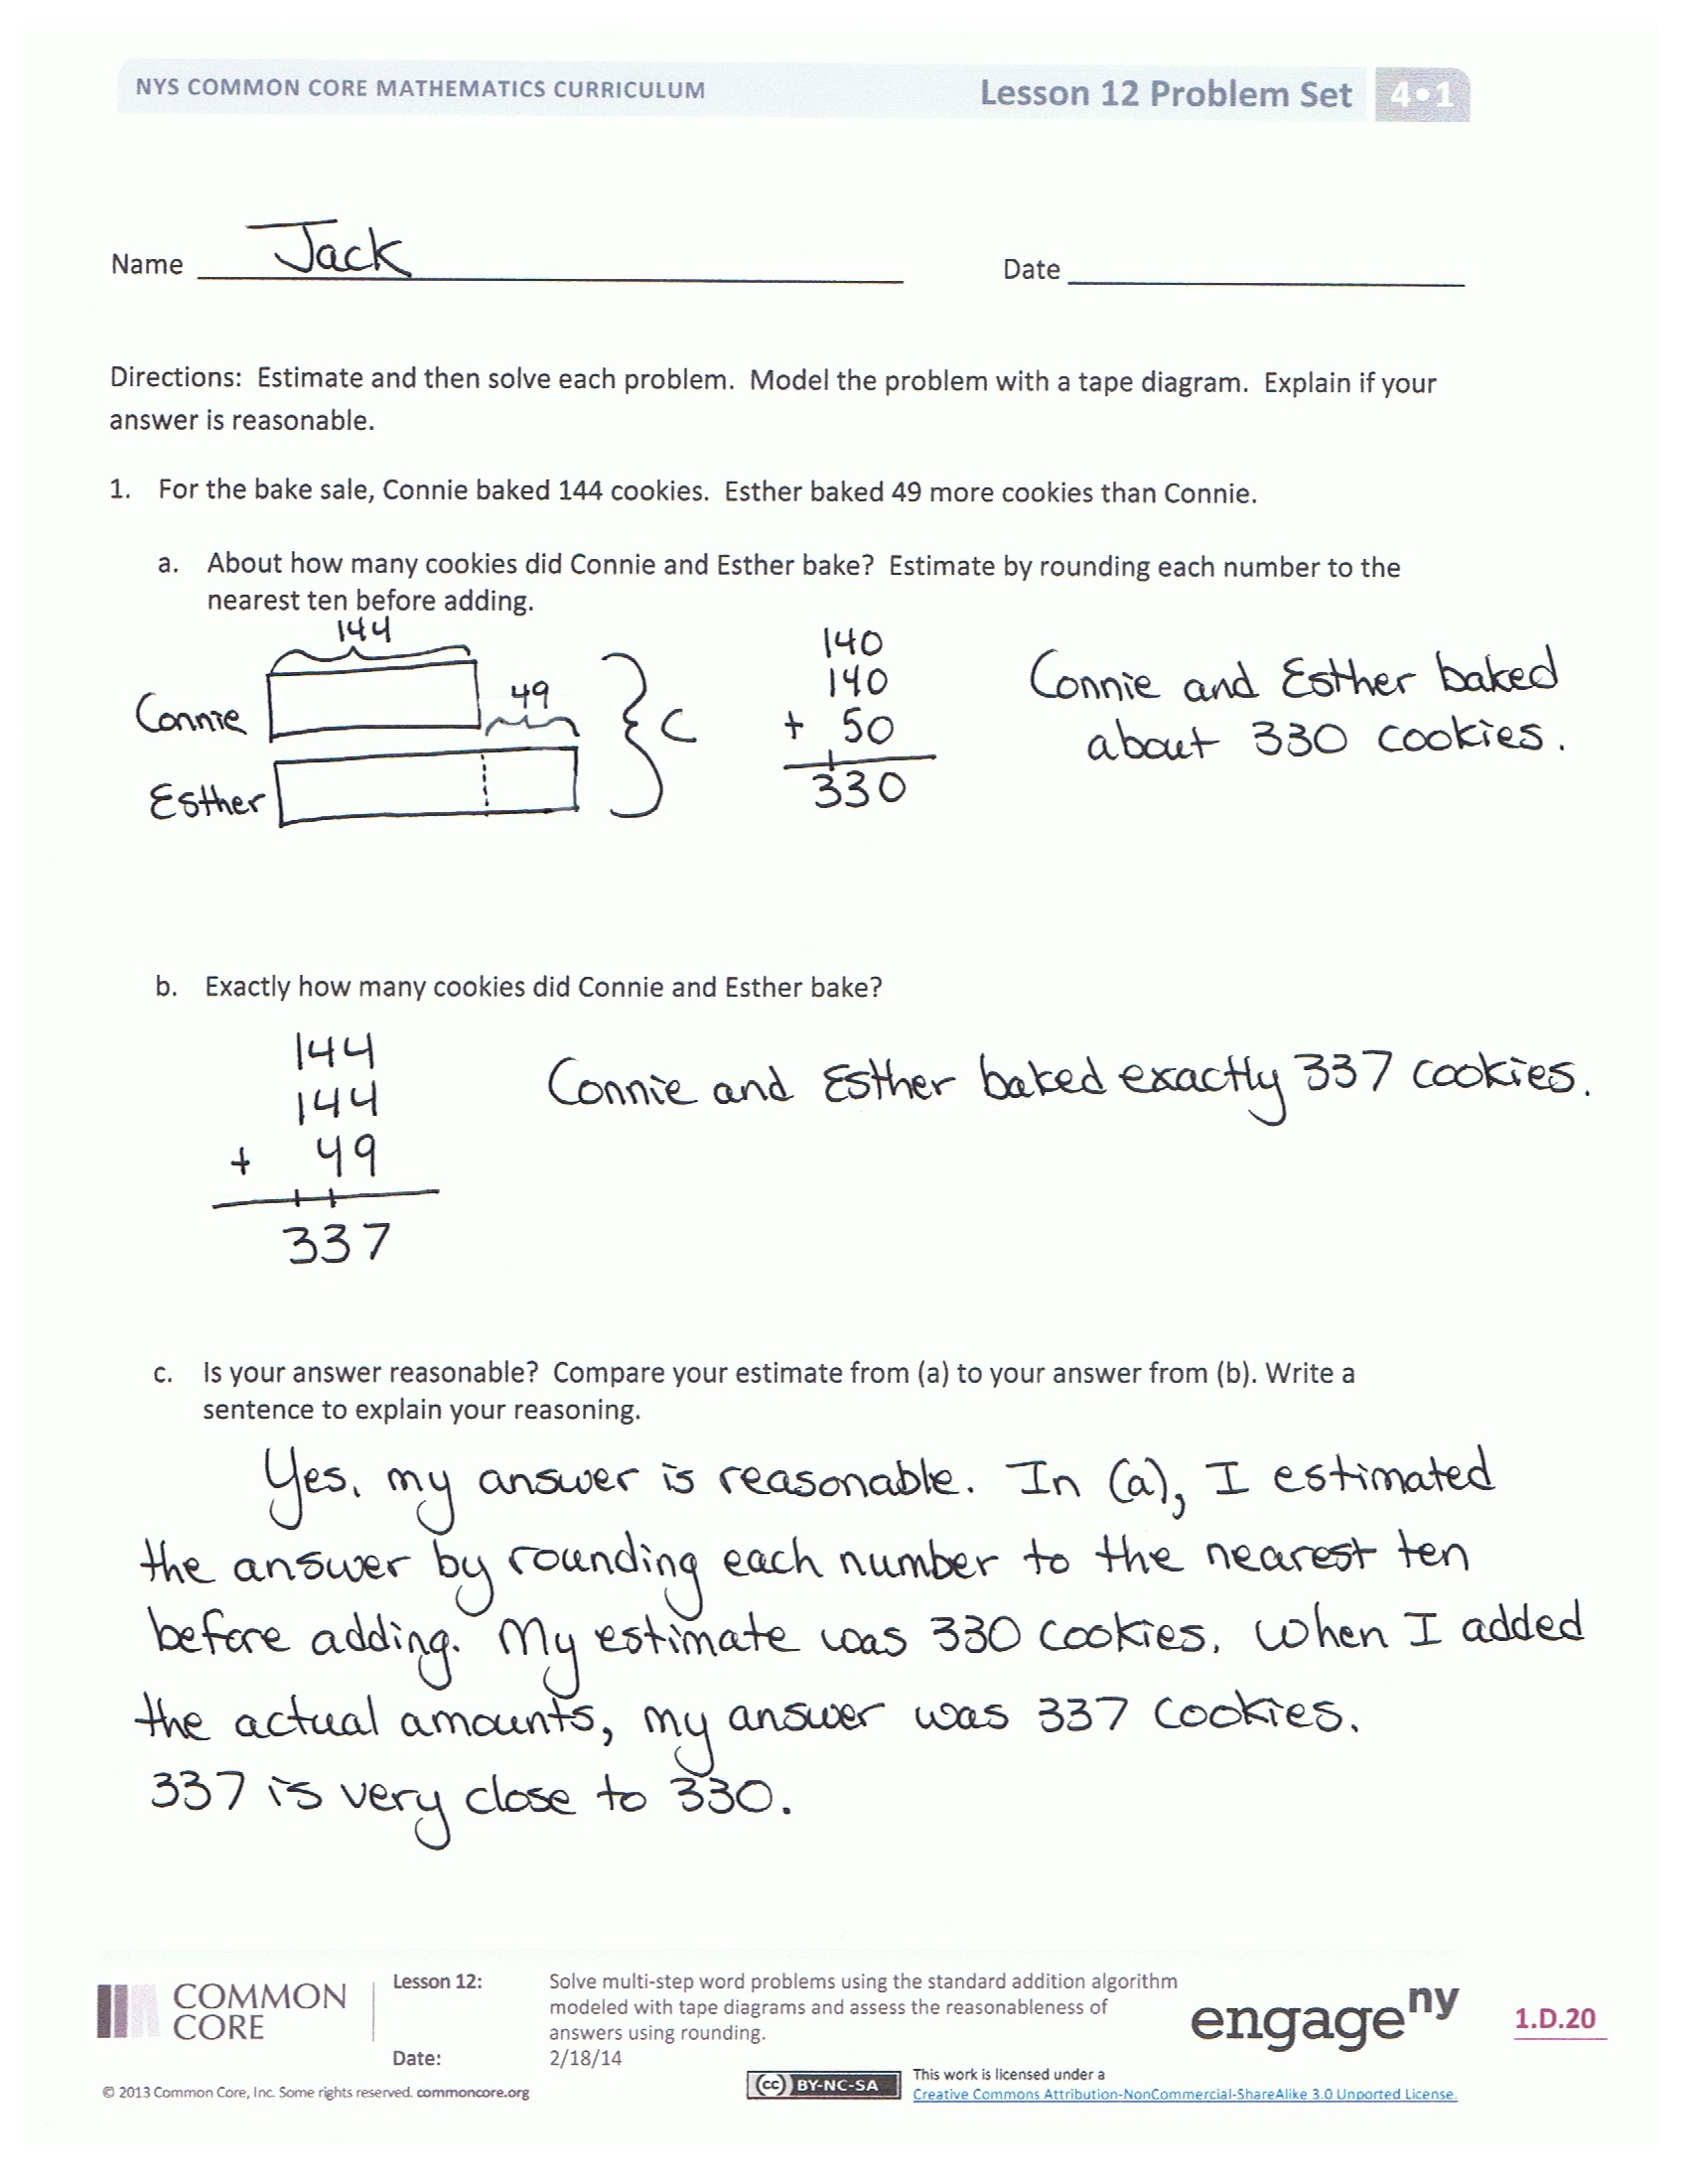 NYS COMMON CORE MATHEMATICS CURRICULUM Lesson 12 Problem Set 4•1
Name Jack Date
Directions: Estimate and then solve each problem. Model the problem with a tape diagram. Explain if your
answer is reasonable.
1. For the bake sale, Connie baked 144 cookies. Esther baked 49 more cookies than Connie.
a. About how many cookies did Connie and Esther bake? Estimate by rounding each number to the
nearest ten before adding.
144
Connie
49
Esther
C
140
140
+ 50
1
330
Connie and Esther baked
about 330 cookies.
b. Exactly how many cookies did Connie and Esther bake?
144
144
+ 49
1 1
337
Connie and Esther baked exactly 337 cookies.
c. Is your answer reasonable? Compare your estimate from (a) to your answer from (b). Write a
sentence to explain your reasoning.
Yes, my answer is reasonable. In (a), I estimated
the answer by rounding each number to the nearest ten
before adding. My estimate was 330 cookies. When I added
the actual amounts, my answer was 337 cookies.
337 is very close to 330.
COMMON
CORE
Lesson 12: Solve multi-step word problems using the standard addition algorithm
modeled with tape diagrams and assess the reasonableness of
answers using rounding.
Date: 2/18/14
engage ny
1.D.20
© 2013 Common Core, Inc. Some rights reserved. commoncore.org
cc BY-NC-SA
This work is licensed under a
Creative Commons Attribution-NonCommercial-ShareAlike 3.0 Unported License.